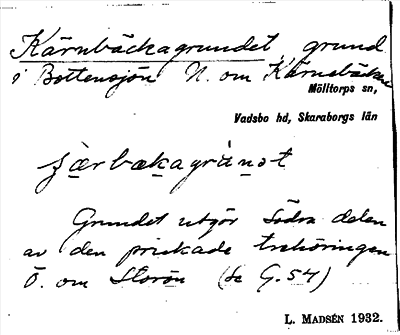 Kärnbäckagrundet, grund
i Bottensjön N. om Kärnebäcken
Mölltorps sn,
Vadsbo hd, Skaraborgs län
Grundet utgör Södra delen
av den prickade trehörningen
Ö. om Storön (Se G.54)
L. MADSÉN 1932.